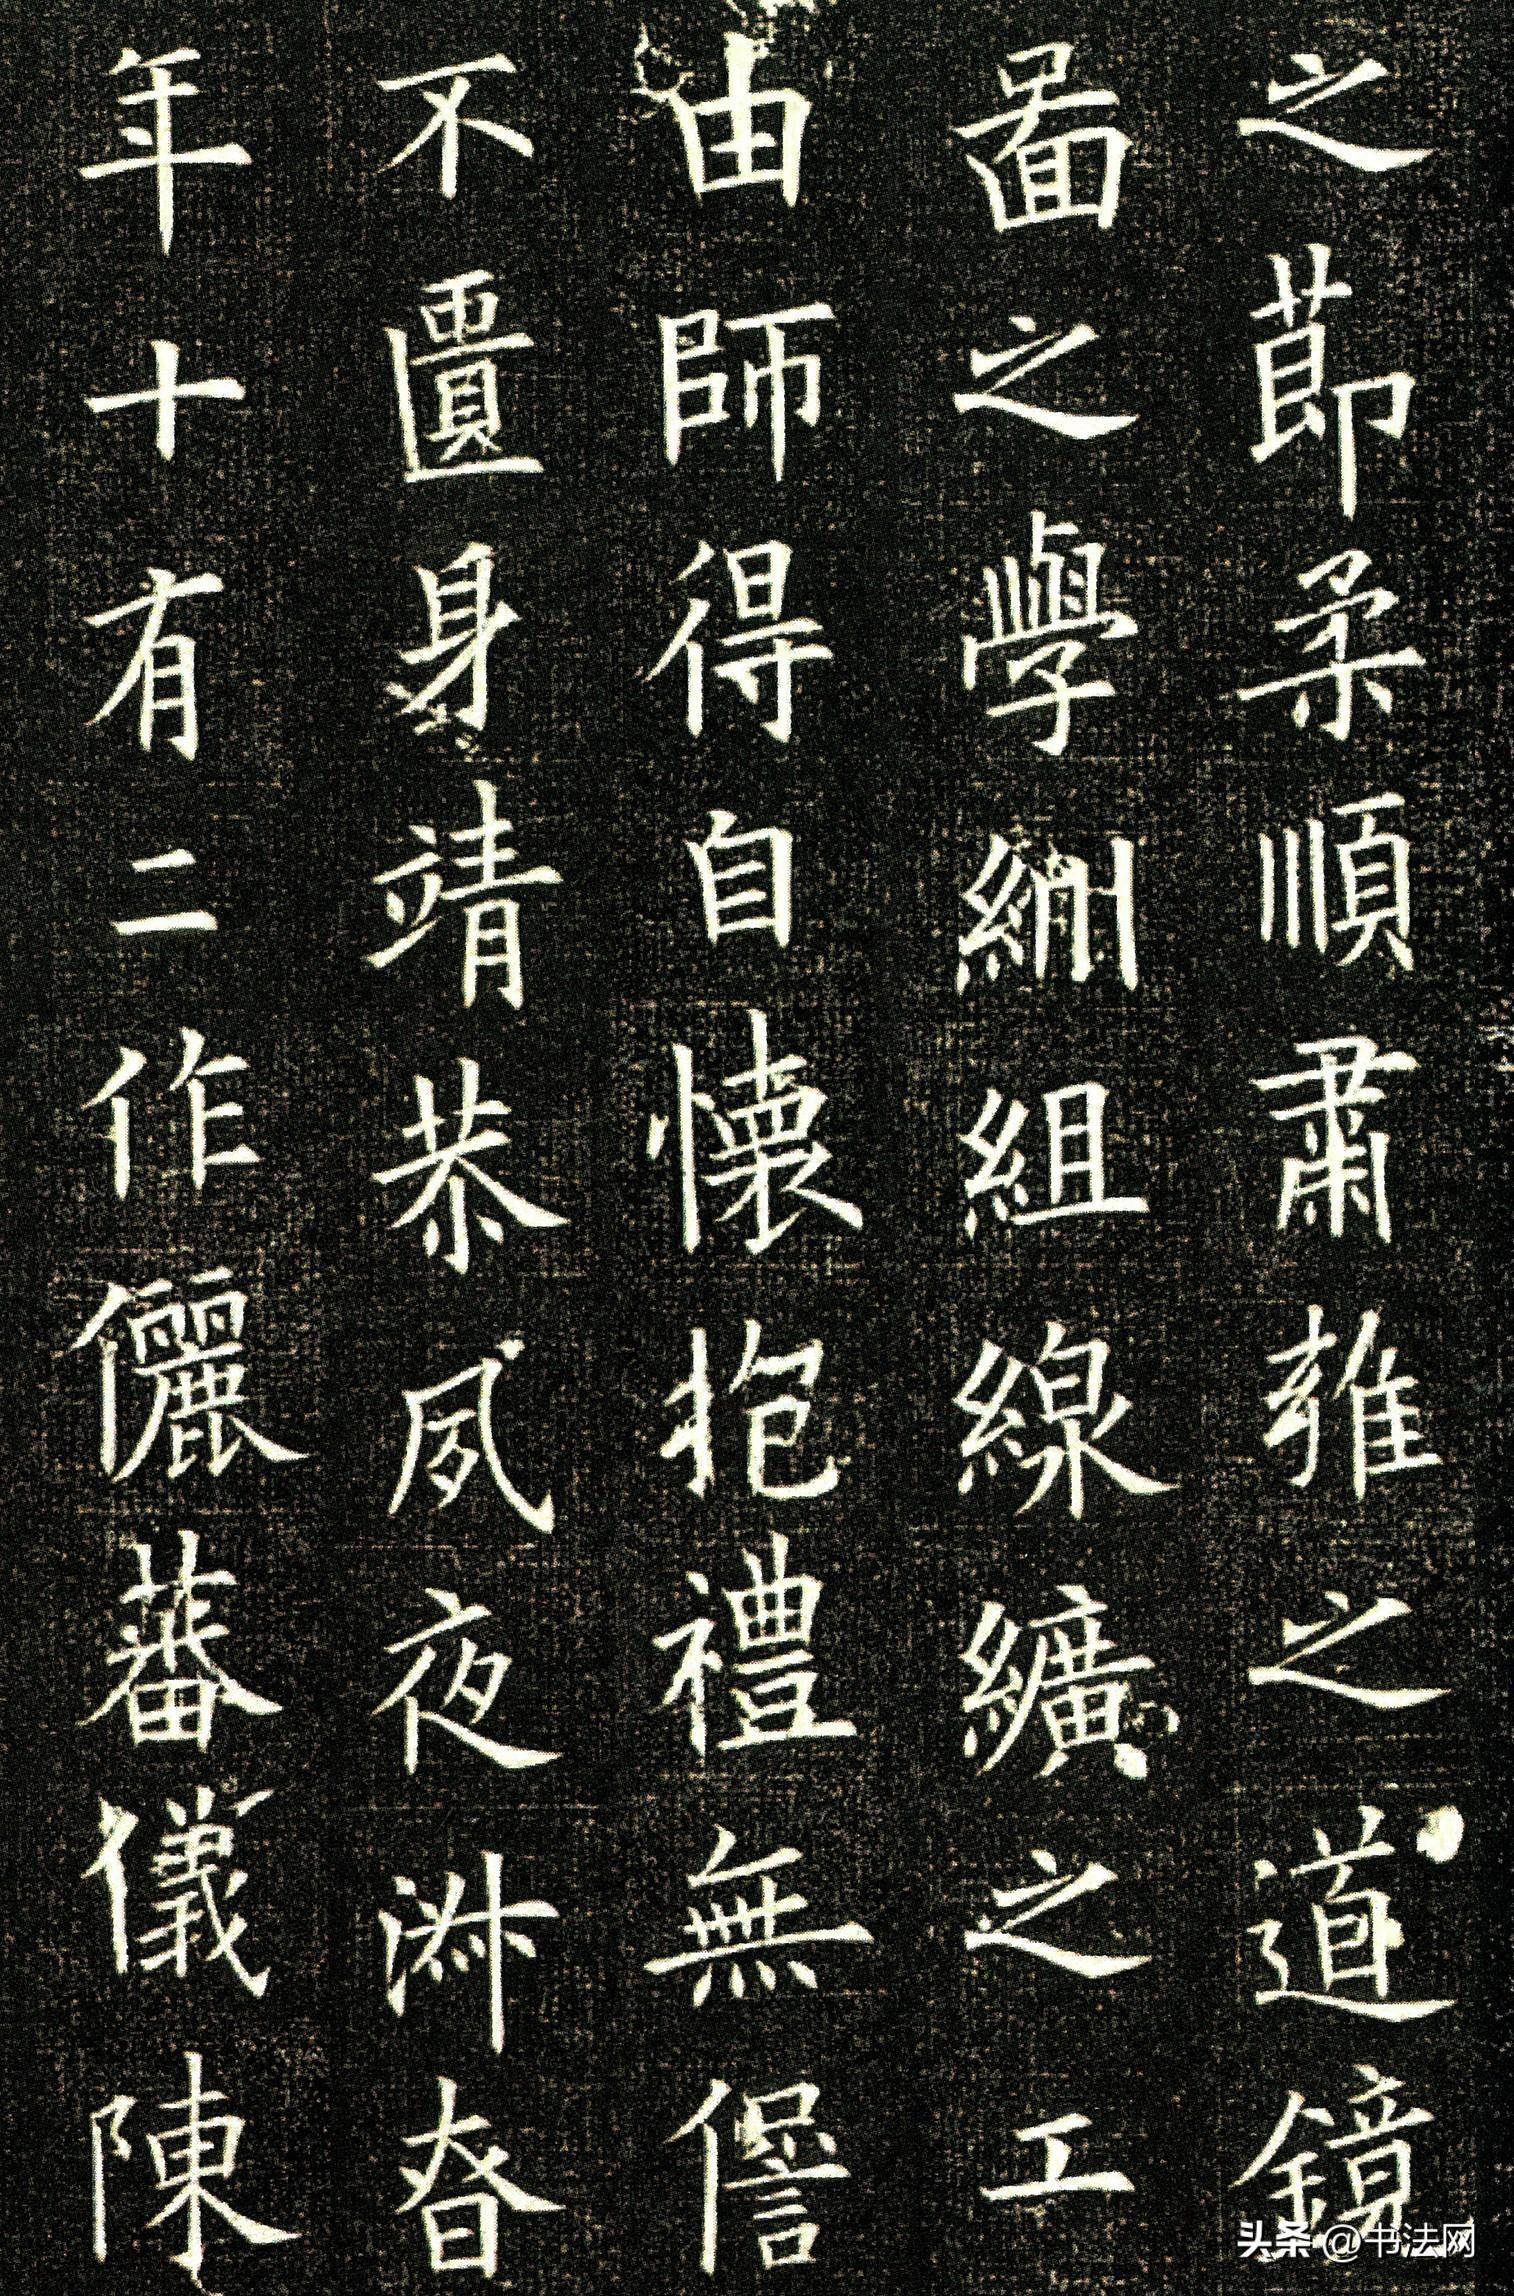 之節柔順肅雍之道鏡
啚之學紃組線纊之工
由師得自懷抱禮無𠎝
不匱身靖恭夙夜淋春
年十有二作儷蕃儀陳
头条@书法网